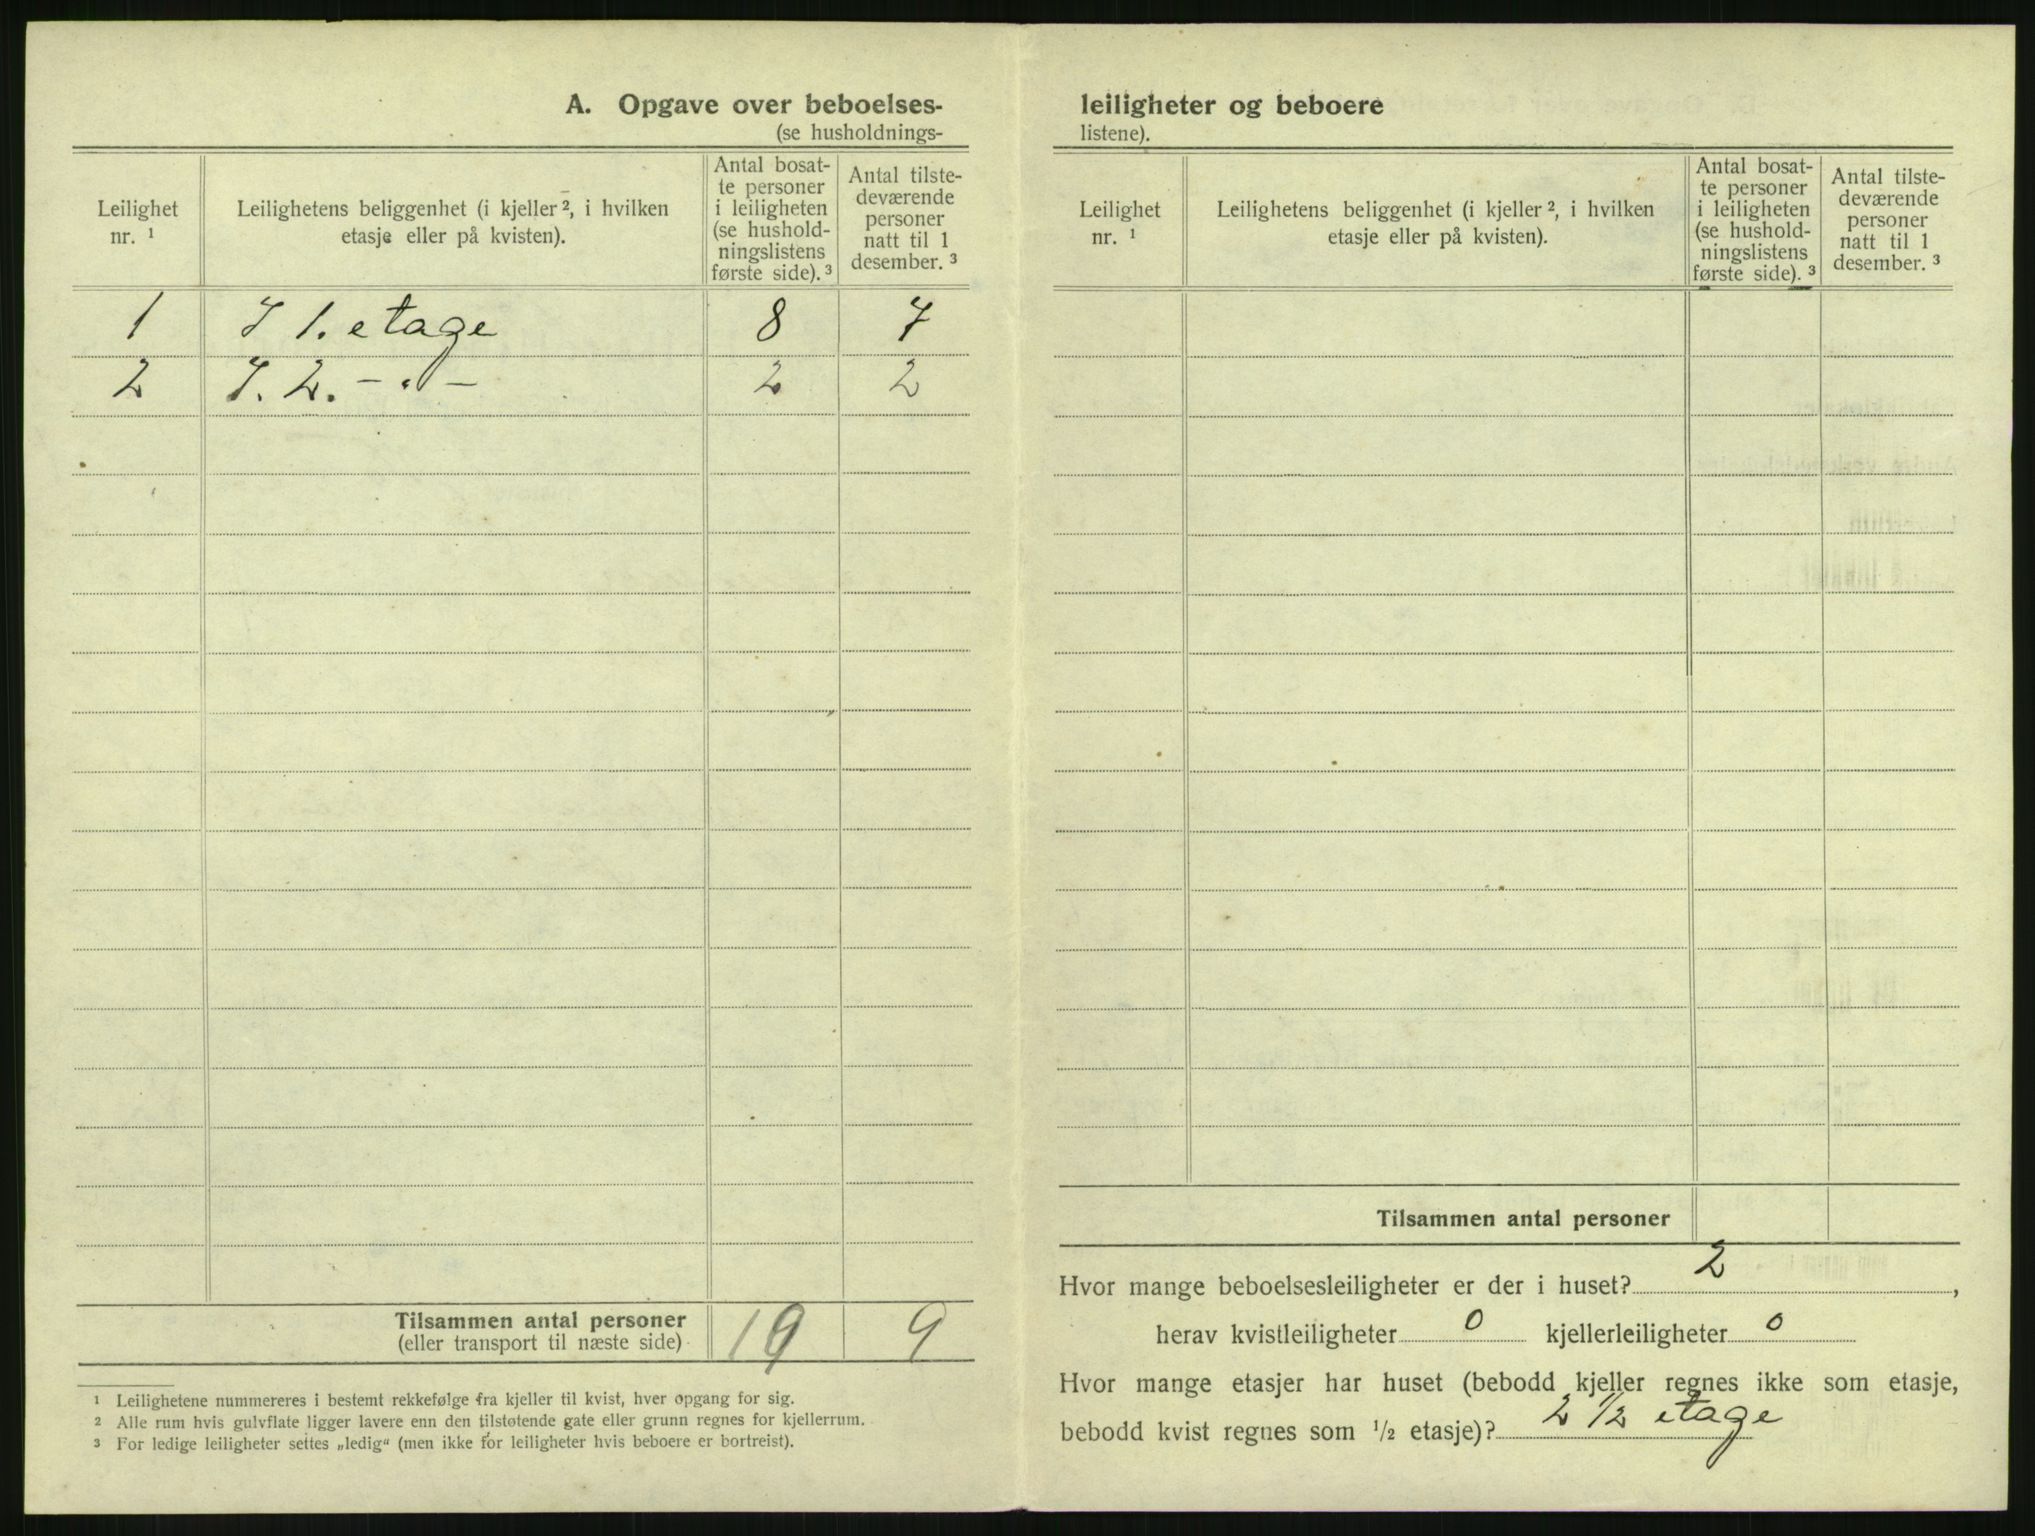 A. Opgave over beboelses-
(se husholdnings-
Leilighet nr. ¹
Leilighetens beliggenhet (i kjeller ², i hvilken etasje eller på kvisten).
Antal bosat-
te personer
i leiligheten
(se hushold-
ningslistens
første side). ³
Antal tilste-
deværende
personer
natt til 1
desember. ³
1 I 1. etage 8 7
2 I. 2. - " - 2 2
Tilsammen antal personer
(eller transport til næste side)
9
¹ Leilighetene nummereres i bestemt rekkefølge fra kjeller til kvist, hver opgang for sig.
² Alle rum hvis gulvflate ligger lavere enn den tilstøtende gate eller grunn regnes for kjellerrum.
³ For ledige leiligheter settes „ledig“ (men ikke for leiligheter hvis beboere er bortreist).
leiligheter og beboere
listene).
Leilighet nr. ¹
Leilighetens beliggenhet (i kjeller ², i hvilken etasje eller på kvisten).
Antal bosat-
te personer
i leiligheten
(se hushold-
ningslistens
første side). ³
Antal tilste-
deværende
personer
natt til 1
desember. ³
Tilsammen antal personer
Hvor mange beboelsesleiligheter er der i huset? 2,
herav kvistleiligheter 0 kjellerleiligheter 0
Hvor mange etasjer har huset (bebodd kjeller regnes ikke som etasje,
bebodd kvist regnes som ½ etasje)? 2 ½ etage